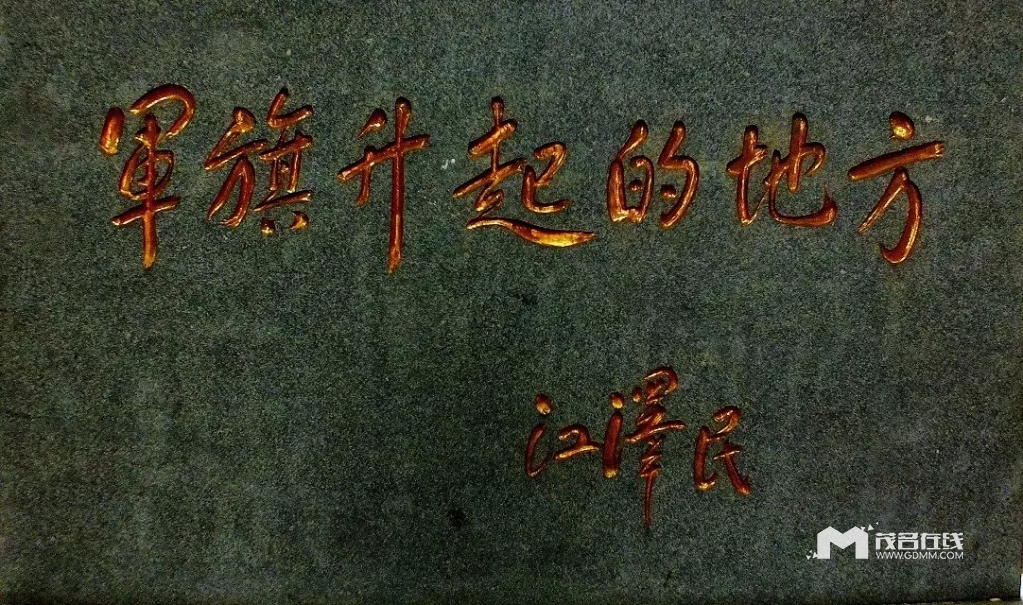 軍旗升起的地方
江澤民
茂名在线
WWW.GDMM.COM